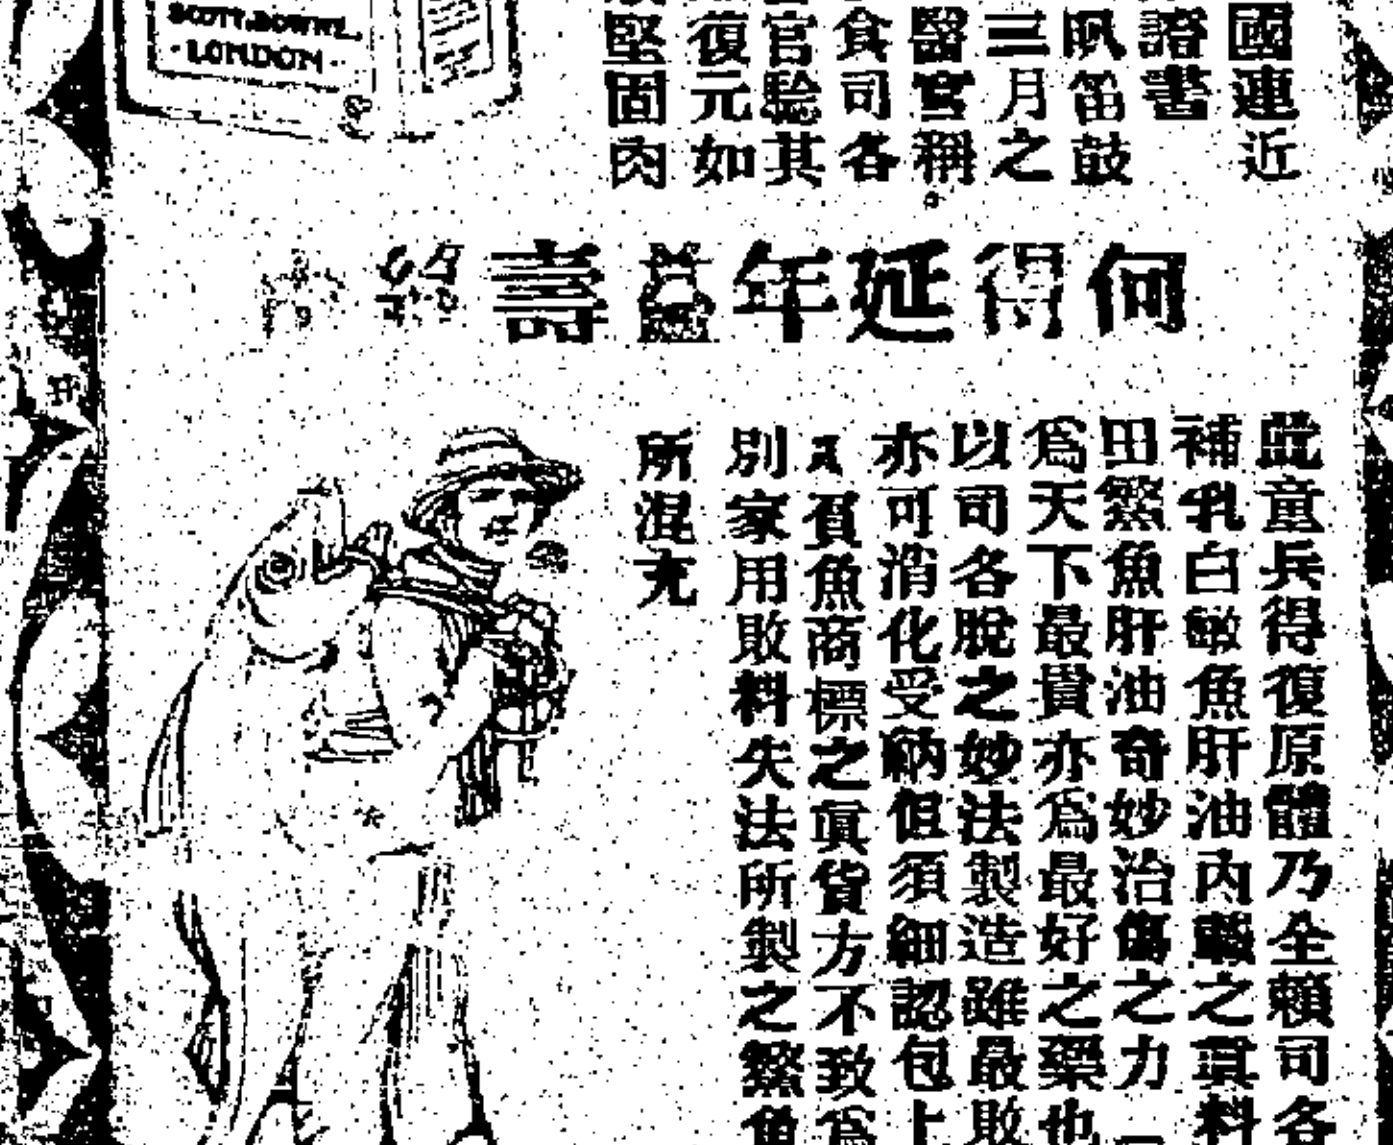 SCOTT & BOWNE,
LONDON
國連近
證書
帆笛鼓
三月之
醫官稱
食司各
官驗其
復元如
堅固肉
何得延年益壽
此童兵得復原體乃全賴司各
補乳白鰵魚肝油內載之真料
田鰵魚肝油奇妙治傷之力一
爲天下最貴亦爲最好之藥也
以司各脫之妙法製造雖最敗
亦可消化受納但須細認包上
人負魚商標之眞貨方不致爲
別家用敗料失法所製之鰵魚
所混充